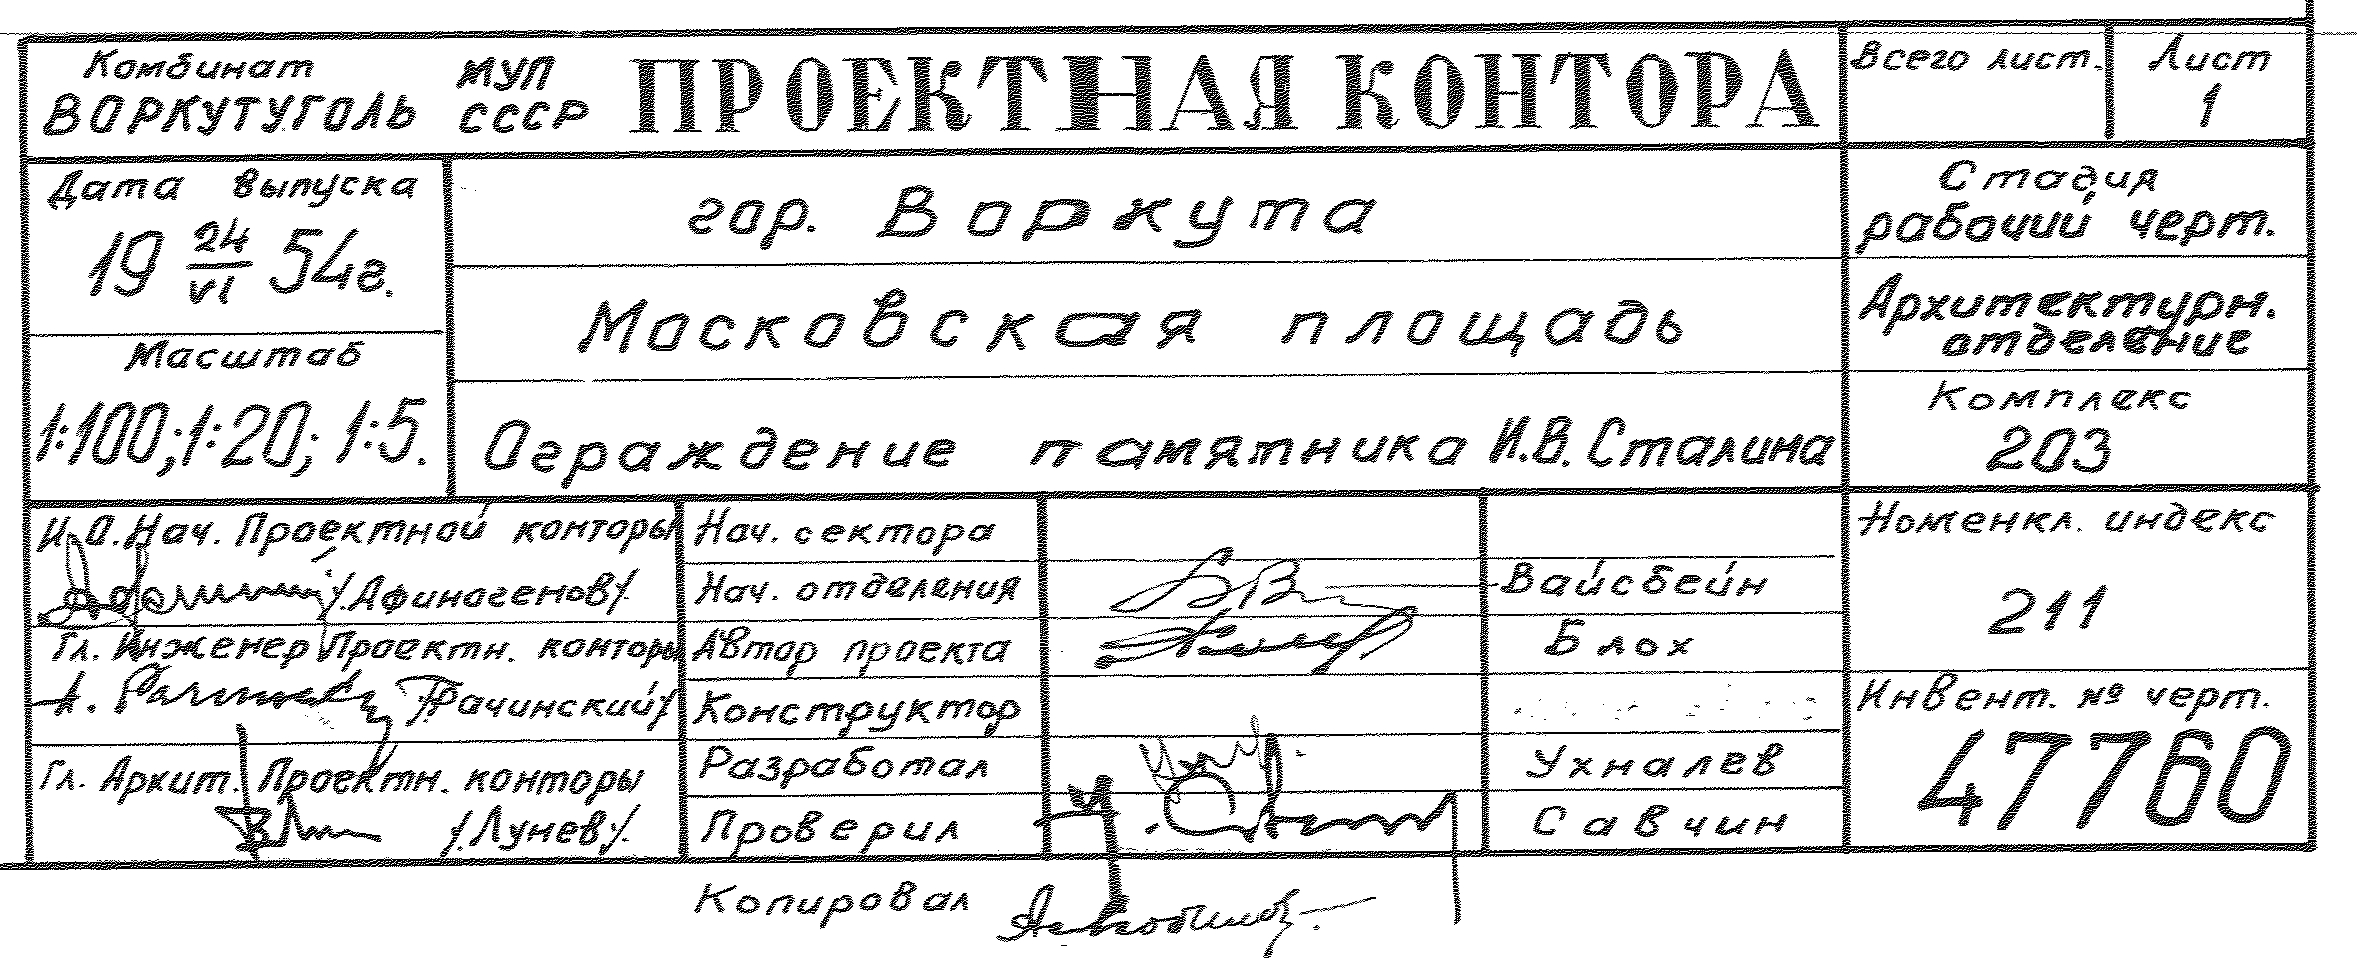 Комбинат МУП ПРОЕКТНАЯ КОНТОРА Всего лист. Лист
ВОРКУТУГОЛЬ СССР 1
Дата выпуска
19 24/VI 54г.
Масштаб
1:100; 1:20; 1:5.
гор. Воркута
Московская площадь
Ограждение памятника И.В. Сталина
Стадия
рабочий черт.
Архитектурн.
отделение
Комплекс
203
И.О. Нач. Проектной конторы
/.Афиногенов/.
Гл. Инженер Проектн. конторы
/.Рачинский/
Гл. Аркит. Проектн. конторы
/.Лунев/.
Нач. сектора
Нач. отделения Вайсбейн
Автор проекта Блох
Конструктор
Разработал Ухналев
Проверил Савчин
Номенкл. индекс
211
Инвент. № черт.
47760
Копировал